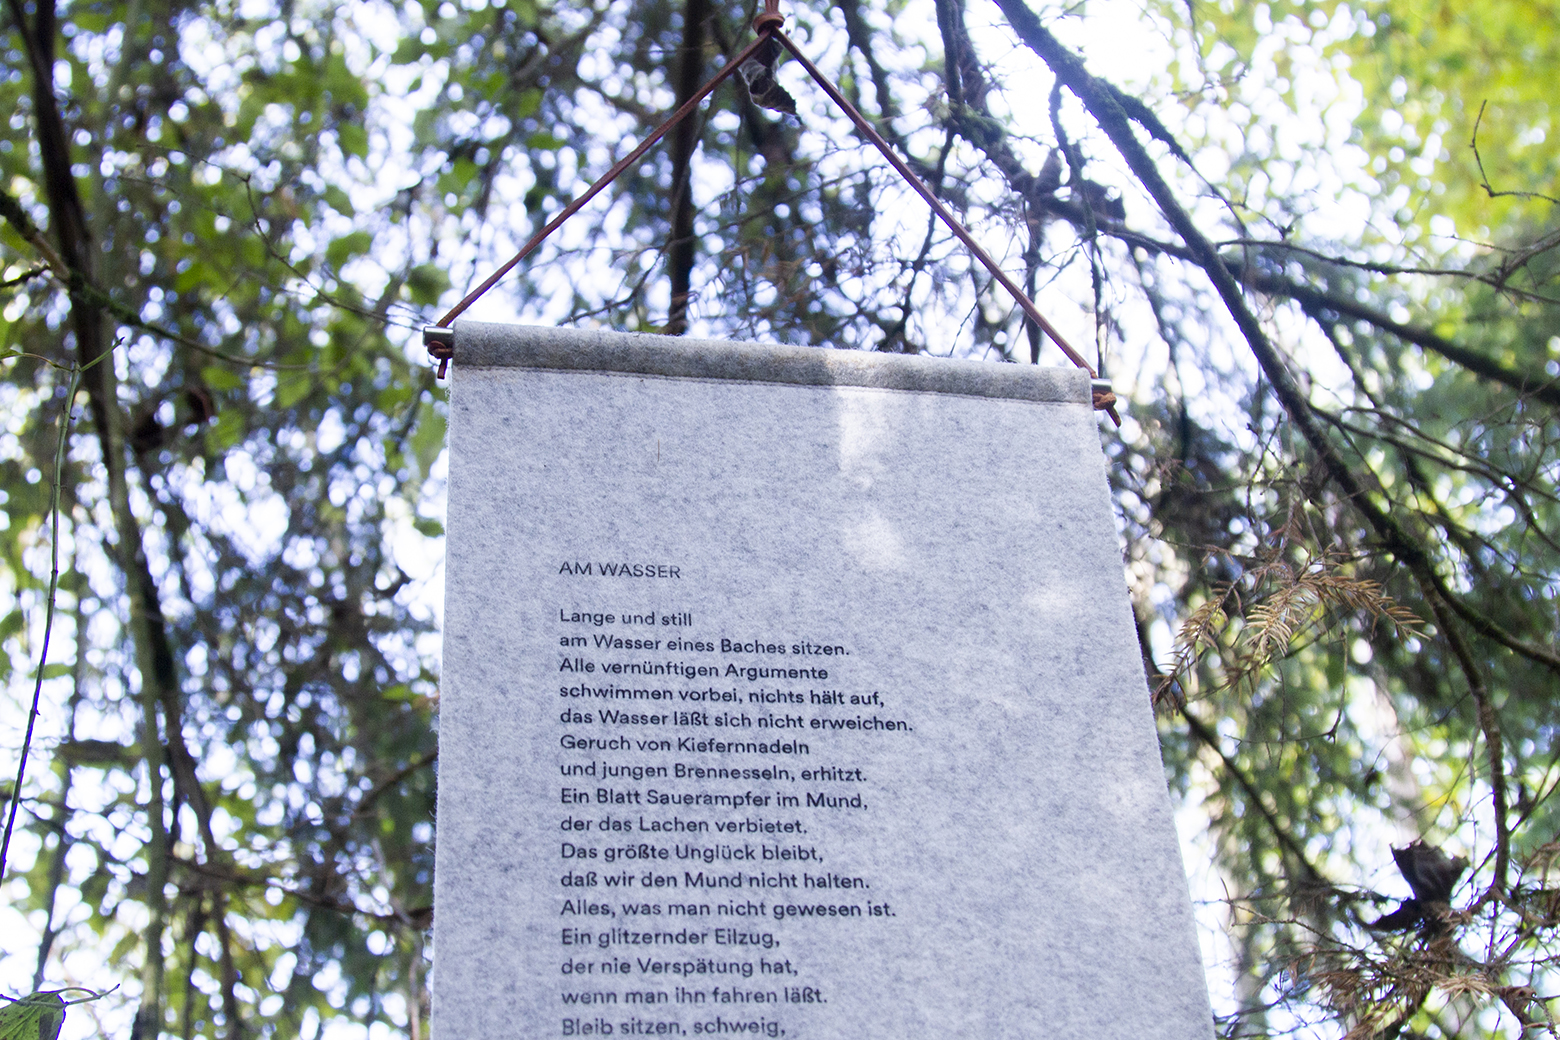 AM WASSER
Lange und still
am Wasser eines Baches sitzen.
Alle vernünftigen Argumente
schwimmen vorbei, nichts hält auf,
das Wasser läßt sich nicht erweichen.
Geruch von Kiefernnadeln
und jungen Brennesseln, erhitzt.
Ein Blatt Sauerampfer im Mund,
der das Lachen verbietet.
Das größte Unglück bleibt,
daß wir den Mund nicht halten.
Alles, was man nicht gewesen ist.
Ein glitzernder Eilzug,
der nie Verspätung hat,
wenn man ihn fahren läßt.
Bleib sitzen, schweig,